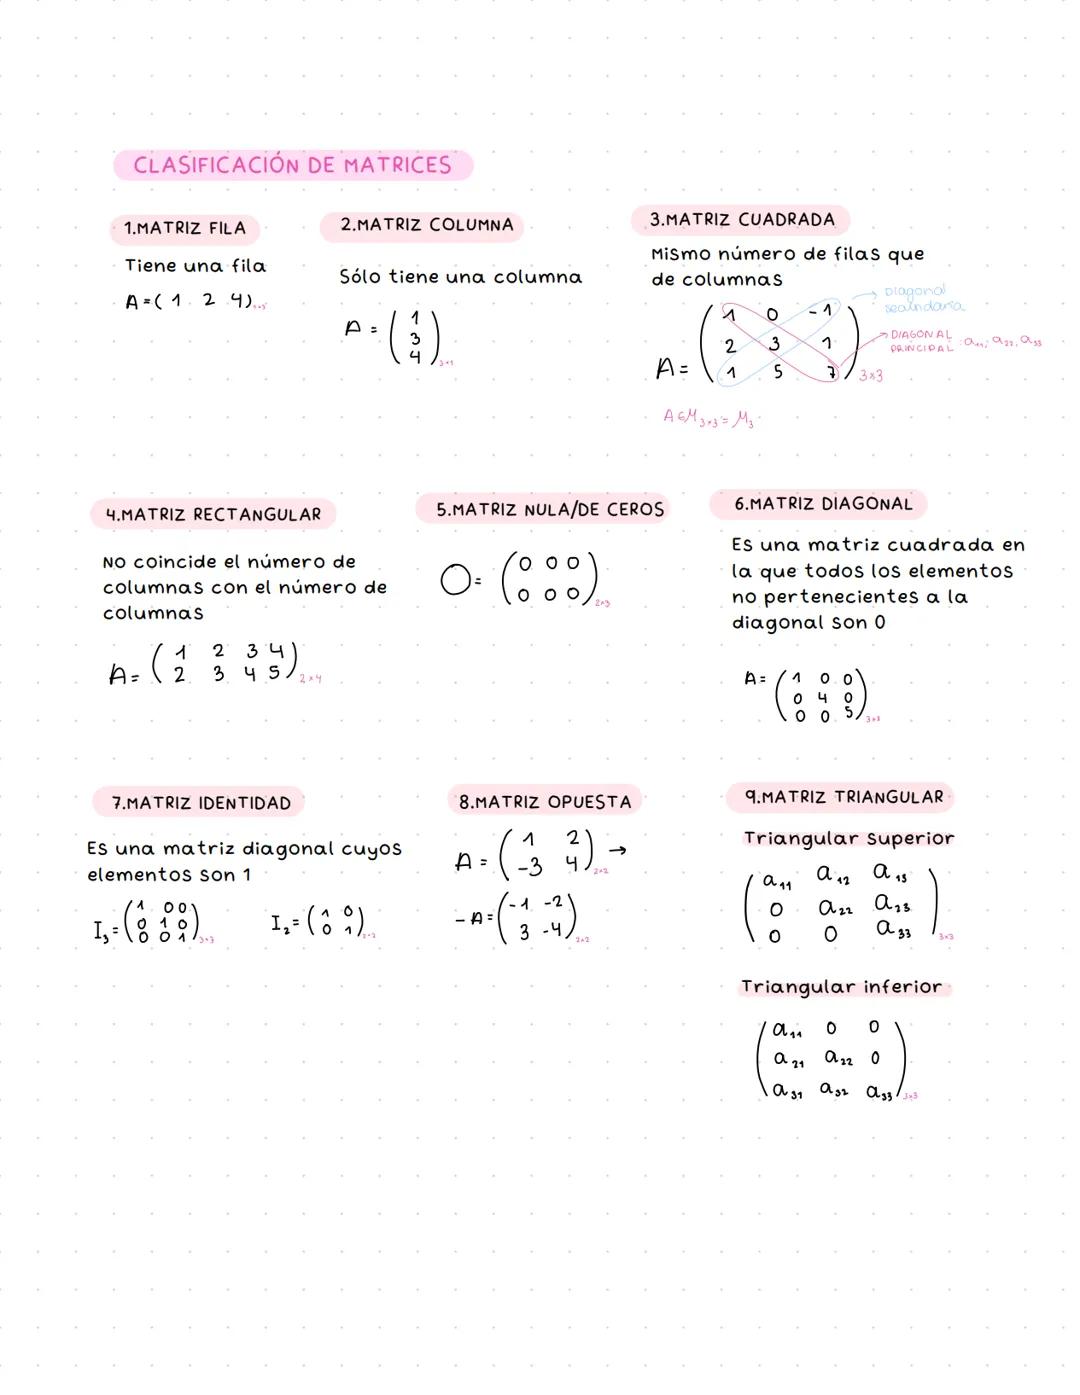 CLASIFICACIÓN DE MATRICES
1.MATRIZ FILA
Tiene una fila
A=( 1 2 4)
2.MATRIZ COLUMNA
Sólo tiene una columna
A =
1
3
4
3×1
3.MATRIZ CUADRADA
Mismo número de filas que
de columnas
A=
1 0 -1
2 3 1
1 5 7
3×3
Diagonal
secundaria
DIAGONAL
PRINCIPAL : a₁₁, a₂₂, a₃₃
A∈M₃ₓ₃ = M₃
4.MATRIZ RECTANGULAR
No coincide el número de
columnas con el número de
columnas
A=
1 2 3 4
2 3 4 5
2×4
5.MATRIZ NULA/DE CEROS
O=
0 0 0
0 0 0
2×3
6.MATRIZ DIAGONAL
Es una matriz cuadrada en
la que todos los elementos
no pertenecientes a la
diagonal son 0
A=
1 0 0
0 4 0
0 0 5
3×3
7.MATRIZ IDENTIDAD
Es una matriz diagonal cuyos
elementos son 1
I₃=
1 0 0
0 1 0
0 0 1
3×3
I₂=
1 0
0 1
2×2
8.MATRIZ OPUESTA
A =
1 2
-3 4
2×2
→
-A=
-1 -2
3 -4
2×2
9.MATRIZ TRIANGULAR
Triangular superior
a₁₁ a₁₂ a₁₃
0 a₂₂ a₂₃
0 0 a₃₃
3×3
Triangular inferior
a₁₁ 0 0
a₂₁ a₂₂ 0
a₃₁ a₃₂ a₃₃
3×3